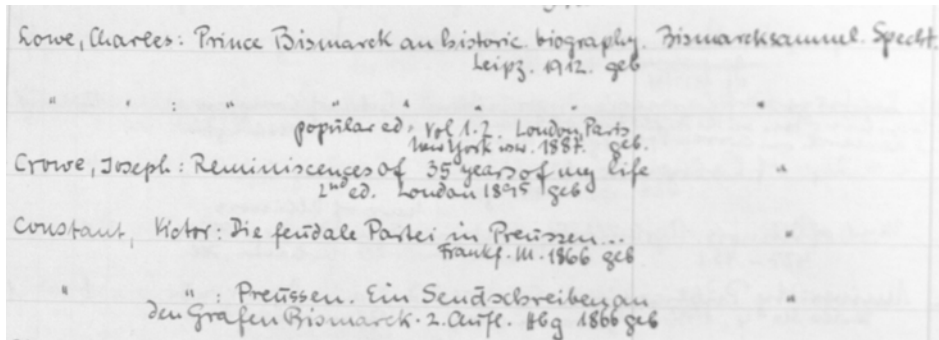 Lowe, Charles: Prince Bismarck an historic. biography. Bismarcksamml. Specht.
Leipz. 1912. geb
" " : " " " " "
popülar ed. vol 1.2. London, Paris
New York usw. 1887. geb.
Crowe, Joseph: Reminiscences of 35 years of my life "
2nd ed. London 1895 geb
Constant, Victor: Die feüdale Partei in Preüssen... "
Frankf. M. 1866 geb
" " : Preüssen. Ein Sendschreiben an "
den Grafen Bismarck. 2. Aüfl. Hbg 1866 geb